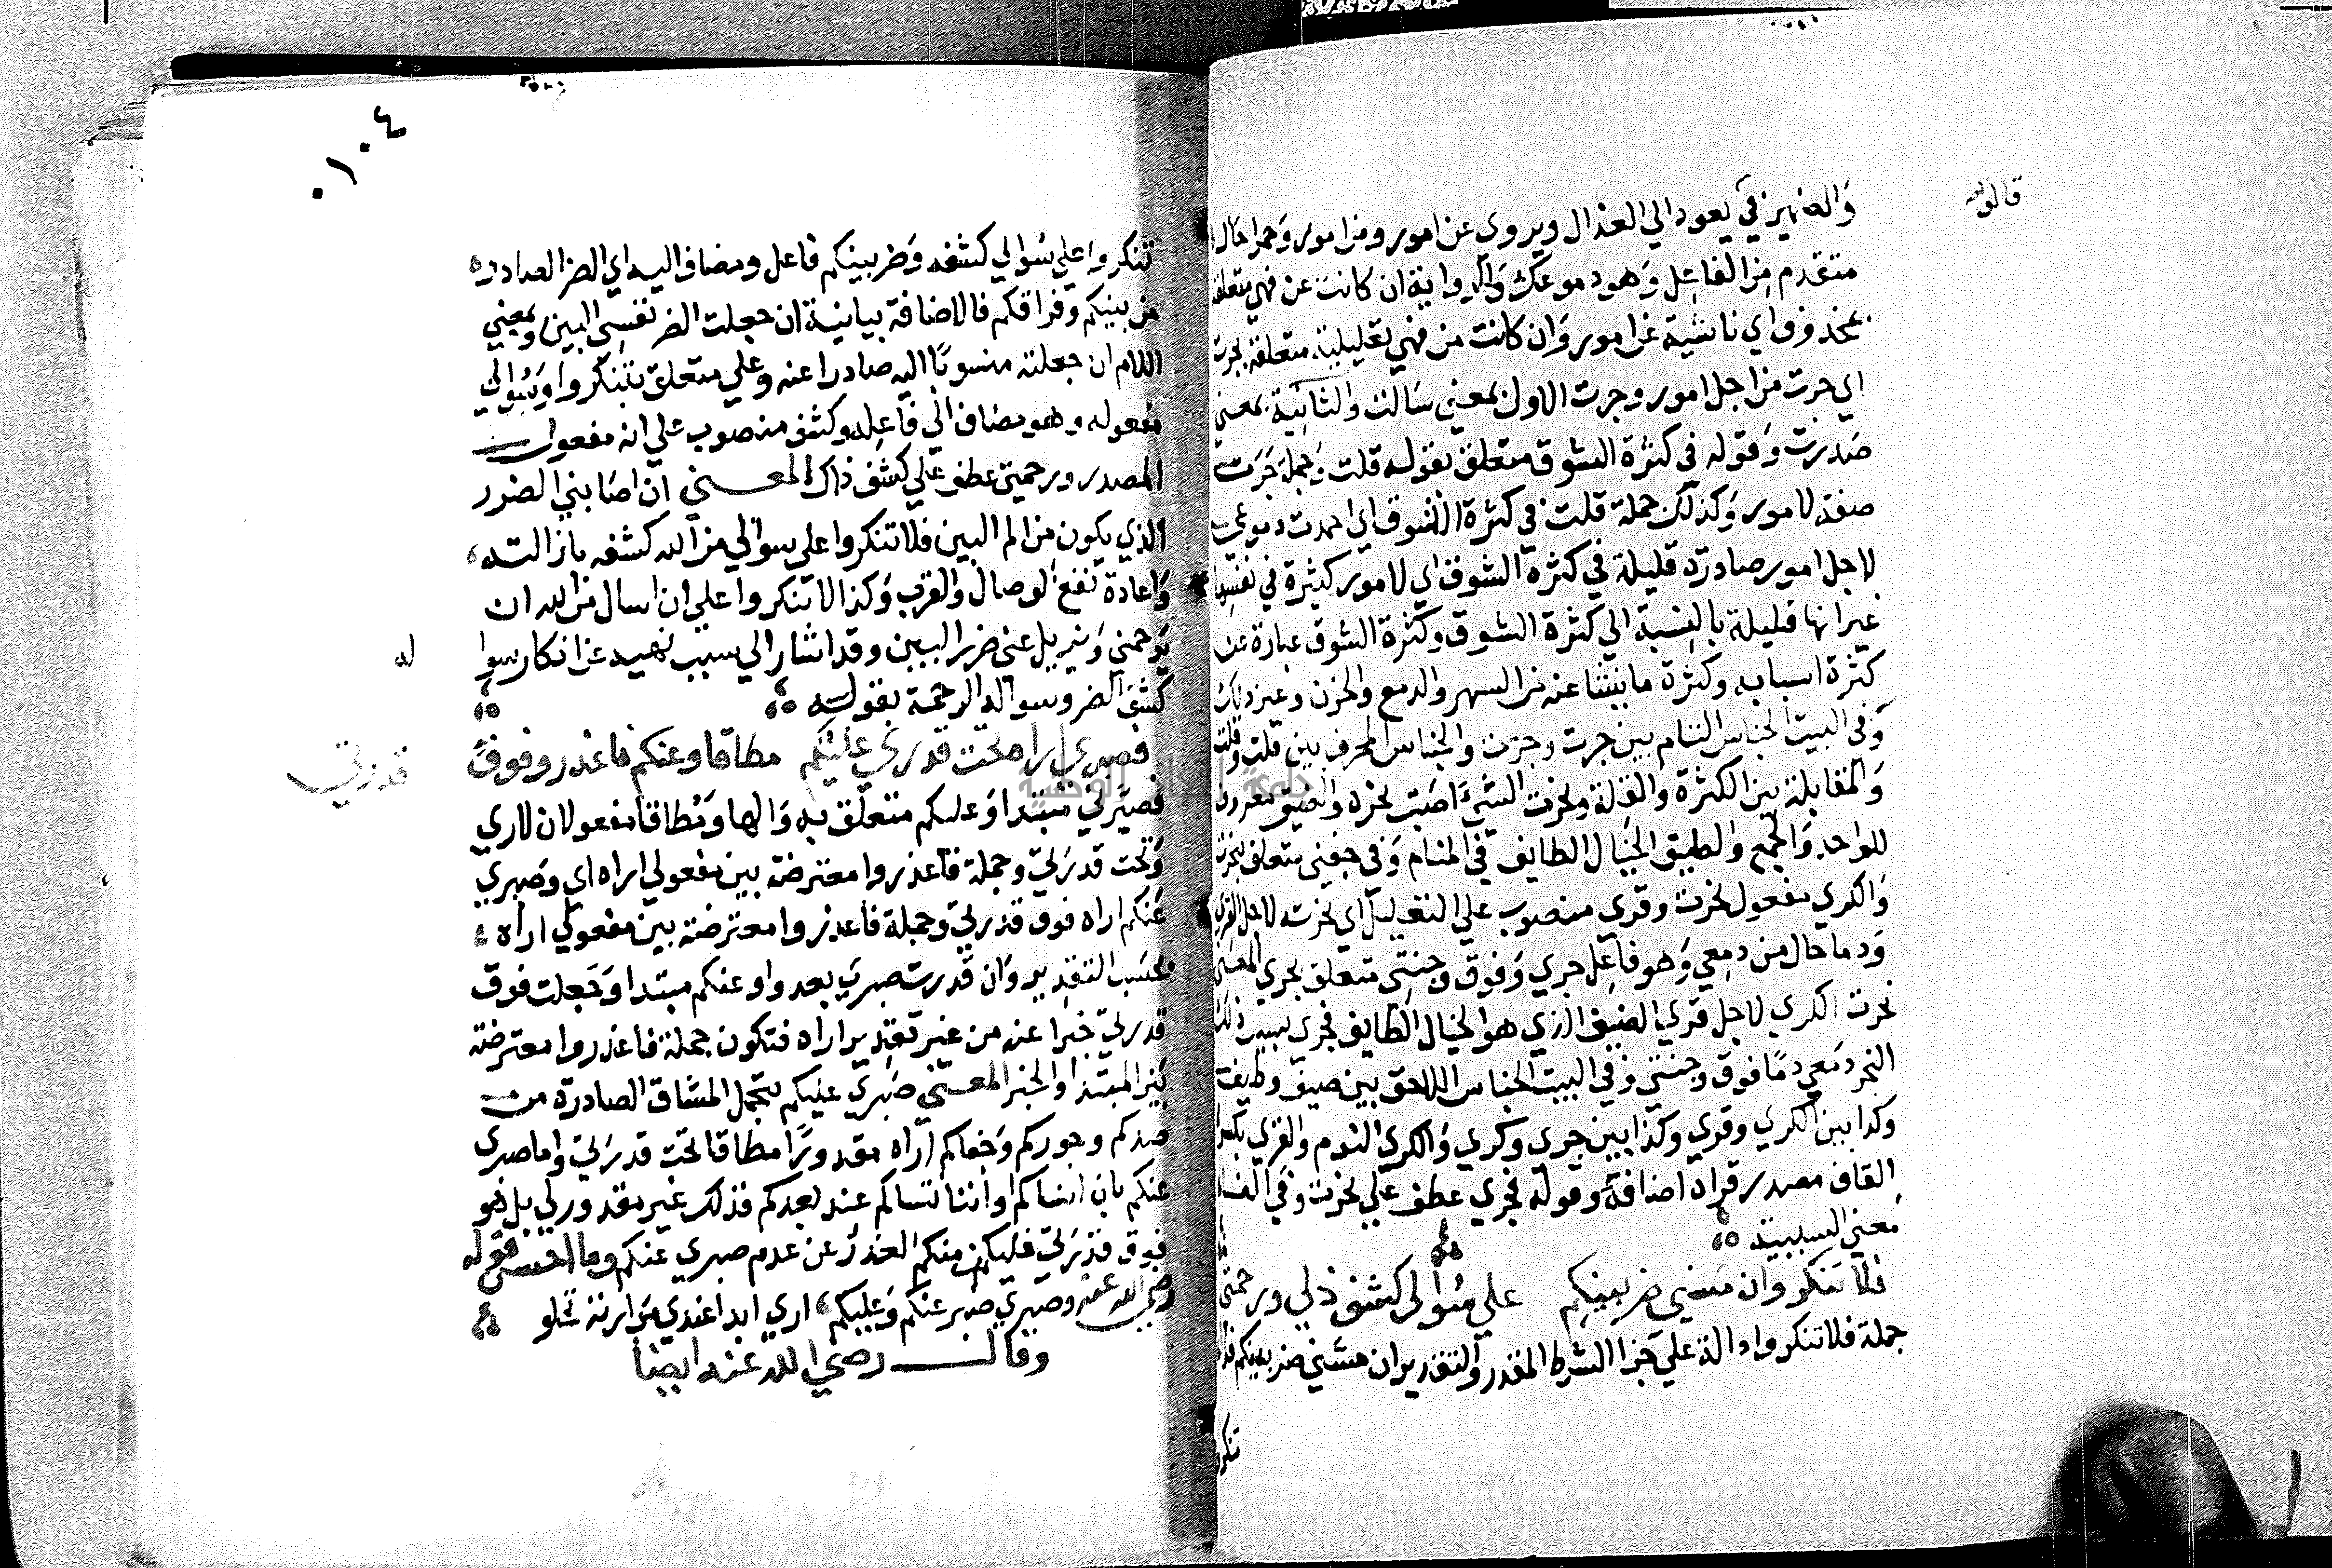 قالوا
والضمير في يعود الي العذال ويروي عن امور ومن امور وحمرا حال
متقدم من الفاعل وهو دموعك والروايۃ ان كانت عن فهي متعلقة
بمحذوف اي ناشية عن امور وان كانت من فهي تعليلية متعلقة بجرت
اي جرت من اجل امور وجرت الاول بمعني سالت والثانية بمعني
صدرت وقوله في كثرة الشوق متعلق بقوله قلت وجملة جرت
صفة لامور وكذلك جملة قلت في كثرة الشوق اي دموعي
لاجل امور صادرة قليلة في كثرة الشوق اي لامور كثيرة في نفسها
غير انها قليلة بالنسبة الي كثرة الشوق وكثرة الشوق عبارة عن
كثرة اسبابه وكثرة ما ينشا عنه من السهر والدمع والحزن وغير ذلك
وفي البيت الجناس التام بين جرت وجرت والجناس المحرف بين قلت وقلت
والمقابلة بين الكثرة والقلة ونحرت الشيء اصبت نحره والضيف معروف
للواحد والجمع والطيف الخيال الطايف في المنام وفي جفني متعلق بنحرت
والكري مفعول نحرت وقري منصوب علي التعليل اي نحرته لاجل القري
ودما حال من دمعي وهو فاعل جري وفوق وجنتي متعلق بجري المعني
نحرت الكري لاجل قري الضيف الذي هو الخيال الطايف فجري بسبب ذلك
النحر دمعي دما فوق وجنتي وفي البيت الجناس اللاحق بين ضيف وطيف
وكذا بين الكري وقري وكذا بين جري وكري والكري النوم والقري بكسر
القاف مصدر قراه اضافه وقوله فجري عطف علي نحرت وفي الفا
معني السببية
فلا تنكروا ان مسني ضر بينكم علي سوالي كشف ذلي ورحمتي
جملة فلا تنكروا دالة علي جزا الشرط المقدر والتقدير ان مسني ضر بينكم فلا
تنكروا
١٠٤
تنكروا علي سوالي كشفه وضر بينكم فاعل ومضاف اليه اي الضر الصادر
من بينكم وفراقكم فالاضافة بيانية ان جعلت الضر نفس البين وبمعني
اللام ان جعلته منسوبا اليه صادرا عنه وعلي متعلق بتنكروا وسوالي
مفعوله وهو مضاف الي فاعله وكشف منصوب علي انه مفعول
المصدر ورحمتي عطف علي كشف ذاك المعني ان اصابني الضرر
الذي يكون من الم البين فلا تنكروا علي سوالي من الله كشفه بازالته
واعادة نفع الوصال والقرب وكذا لا تنكروا علي ان اسال من الله ان
يرحمني ويزيل عني ضرر البين وقد اشار الي سبب نهيه عن انكار سوا
له
كشف الضر وسواله الرحمة بقوله
فصبري اراه تحت قدري عليكم مطاقا وعنكم فاعذروا فوق
قدرتي
فصبري مبتدا وعليكم متعلق به والها ومطاقا مفعولان لاري
وتحت قدرتي وجملة فاعذروا معترضة بين مفعولي اراه اي وصبري
عنكم اراه فوق قدرتي وجملة فاعذروا معترضة بين مفعولي اراه
بحسب التقدير وان قدرت صبري بعد واو عنكم مبتدا وجعلت فوق
قدرتي خبرا عنه من غير تقدير اراه فتكون جملة فاعذروا معترضة
بين المبتدا والخبر المعني صبري عليكم بتحمل المشاق الصادرة من
صدكم وجوركم وجفاكم اراه مقدورا مطاقا تحت قدرتي واما صبري
عنكم بان انساكم او اتناساكم عند بعدكم فذلك غير مقدور لي بل هو
فوق قدرتي فليكن منكم العذر عن عدم صبري عنكم وما احسن قوله
رضي الله عنه وصبري صبر عنكم وعليكم اري ابدا عندي مرارته تحلو
وقال رضي الله عنه ايضا